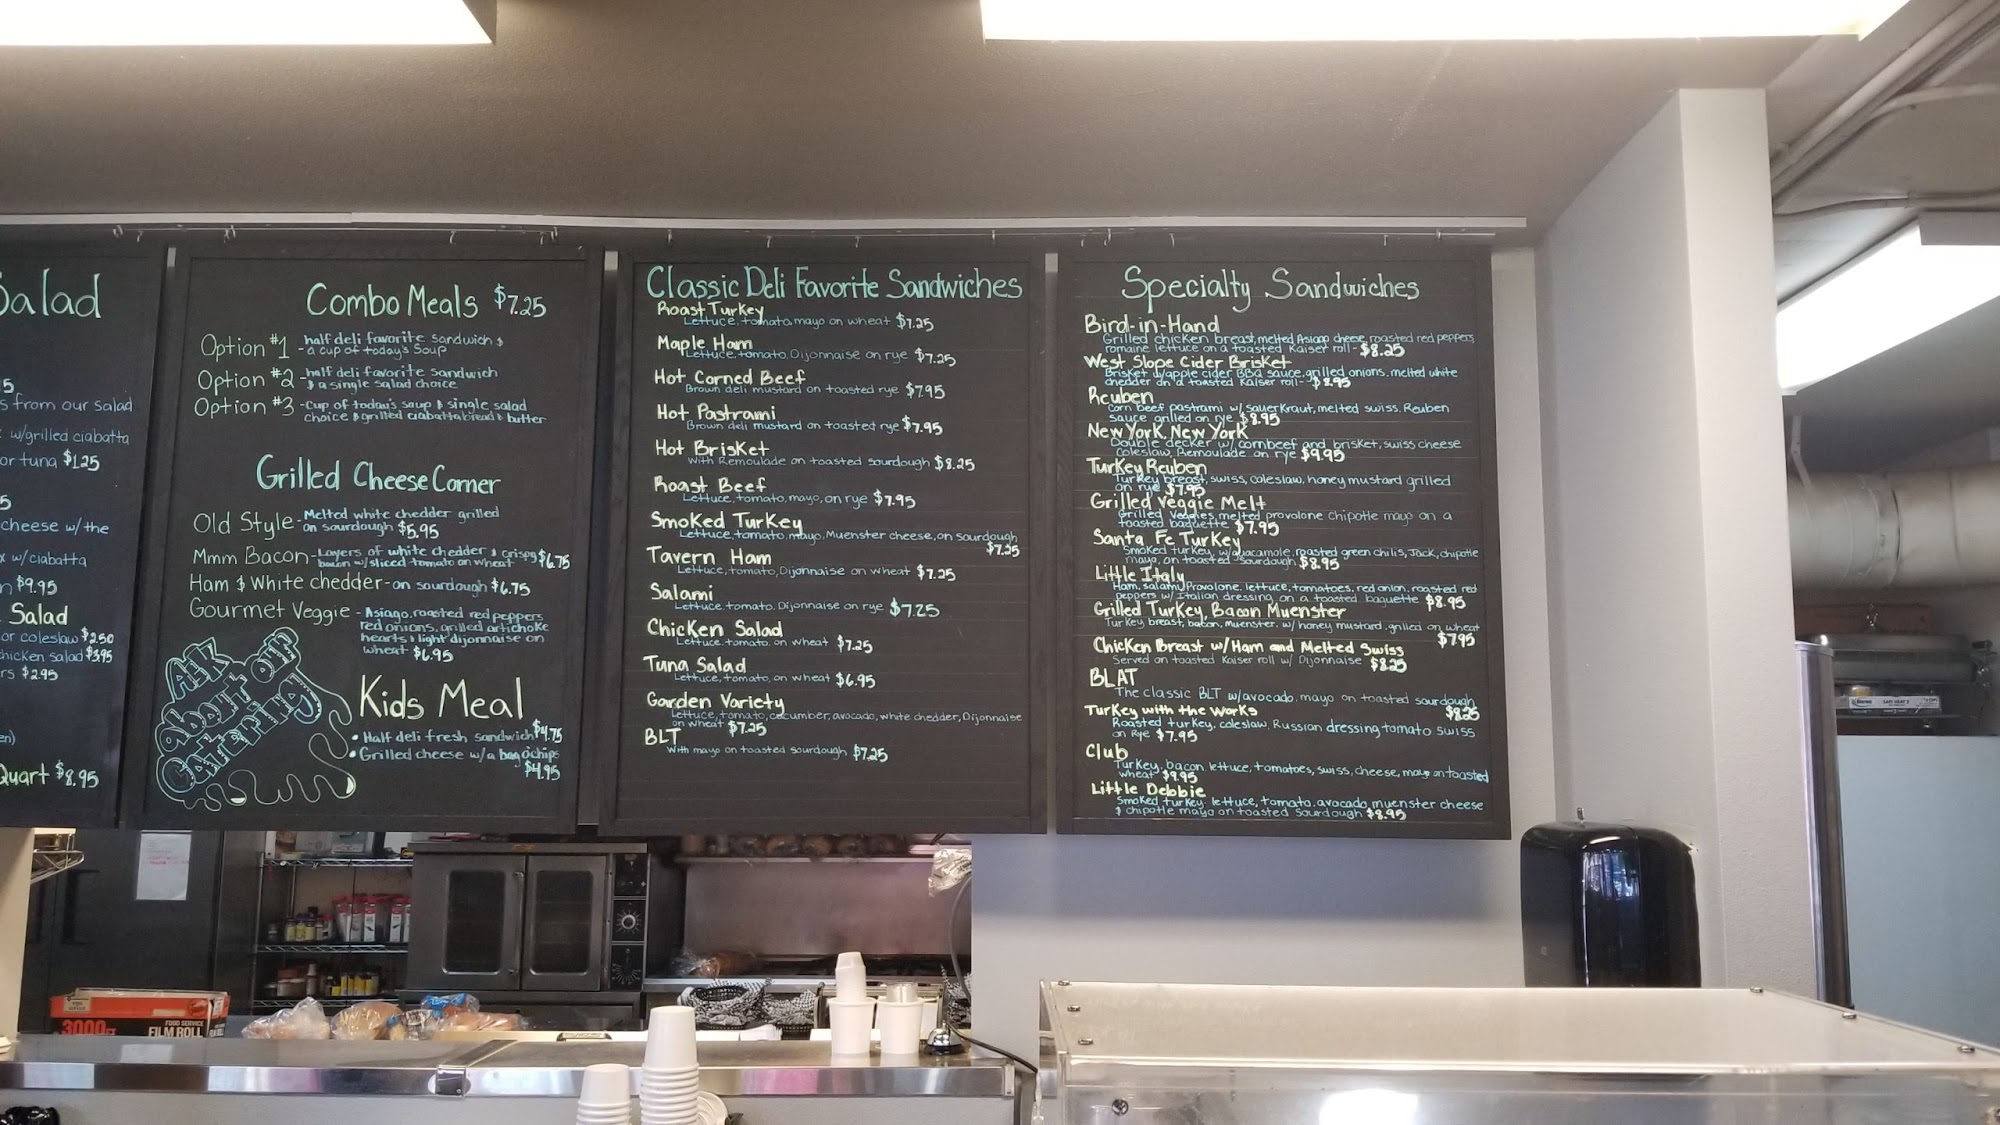 Salad
5
s from our salad
w/grilled ciabatta
or tuna $1.25
5
cheese w/the
x w/ciabatta
n $9.95
Salad
or coleslaw $2.50
chicken salad $3.95
rs $2.95
en)
Quart $8.95
Combo Meals $7.25
Option #1 - half deli favorite sandwich &
a cup of today's Soup
Option #2 - half deli favorite sandwich
& a single salad choice
Option #3 - Cup of today's soup & single salad
choice & grilled ciabatta bread & butter
Grilled Cheese Corner
Old Style - Melted white chedder grilled
on sourdough $5.95
Mmm Bacon - Layers of white chedder & crispy $6.75
bacon w/sliced tomato on wheat
Ham & White chedder - on sourdough $6.75
Gourmet Veggie - Asiago, roasted red peppers
red onions, grilled artichoke
hearts & light dijonnaise on
wheat $6.95
Ask
about our
Catering
Kids Meal
• Half deli fresh sandwich $4.75
• Grilled cheese w/a bag o'chips
$4.95
Classic Deli Favorite Sandwiches
Roast Turkey
Lettuce, tomato, mayo on wheat $7.25
Maple Ham
Lettuce, tomato, Dijonnaise on rye $7.25
Hot Corned Beef
Brown deli mustard on toasted rye $7.95
Hot Pastrami
Brown deli mustard on toasted rye $7.95
Hot Brisket
With Remoulade on toasted sourdough $8.25
Roast Beef
Lettuce, tomato, mayo, on rye $7.95
Smoked Turkey
Lettuce, tomato, mayo, Muenster cheese, on sourdough
$7.25
Tavern Ham
Lettuce, tomato, Dijonnaise on wheat $7.25
Salami
Lettuce, tomato, Dijonnaise on rye $7.25
Chicken Salad
Lettuce, tomato, on wheat $7.25
Tuna Salad
Lettuce, tomato, on wheat $6.95
Garden Variety
Lettuce, tomato, cucumber, avocado, white chedder, Dijonnaise
on wheat $7.25
BLT
With mayo on toasted sourdough $7.25
Specialty Sandwiches
Bird-in-Hand
Grilled chicken breast, melted Asiago cheese, roasted red peppers,
romaine lettuce on a toasted Kaiser roll - $8.25
West Slope Cider Brisket
Brisket w/apple cider BBQ sauce, grilled onions, melted white
chedder on a toasted Kaiser roll - $8.95
Reuben
Corn beef pastrami w/ sauerkraut, melted swiss, Reuben
sauce grilled on rye $8.95
New York, New York
Double decker w/ cornbeef and brisket, swiss cheese
coleslaw, Remoulade on rye $9.95
Turkey Reuben
Turkey breast, swiss, coleslaw, honey mustard grilled
on rye $7.95
Grilled Veggie Melt
Grilled Veggies, melted provolone chipotle mayo on a
toasted baguette $7.95
Santa Fe Turkey
Smoked turkey, w/guacamole, roasted green chilis, Jack, chipotle
mayo, on toasted sourdough $8.95
Little Italy
Ham, salami, Provolone, lettuce, tomatoes, red onion, roasted red
peppers w/ Italian dressing on a toasted baguette $8.95
Grilled Turkey, Bacon Muenster
Turkey breast, bacon, muenster, w/ honey mustard, grilled on wheat
$7.95
Chicken Breast w/Ham and Melted Swiss
Served on toasted Kaiser roll w/ Dijonnaise $8.25
BLAT
The classic BLT w/avocado, mayo on toasted sourdough
$8.25
Turkey with the Works
Roasted turkey, coleslaw, Russian dressing tomato swiss
on Rye $7.95
Club
Turkey, bacon, lettuce, tomatoes, swiss, cheese, mayo on toasted
wheat $9.95
Little Debbie
Smoked turkey, lettuce, tomato, avocado, muenster cheese
& chipotle mayo on toasted sourdough $8.95
3000FT
FOOD SERVICE
FILM ROLL